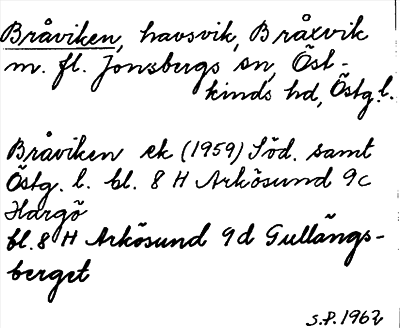 Bråviken, havsvik, Bråxvik
m. fl. Jonsbergs sn, Öst-
kinds hd, Östg. l.
Bråviken ek (1959) Söd. samt
Östg. l. bl. 8 H Arkösund 9c
Hargö
bl. 8 H Arkösund 9d Gullängs-
berget
S.P. 1962